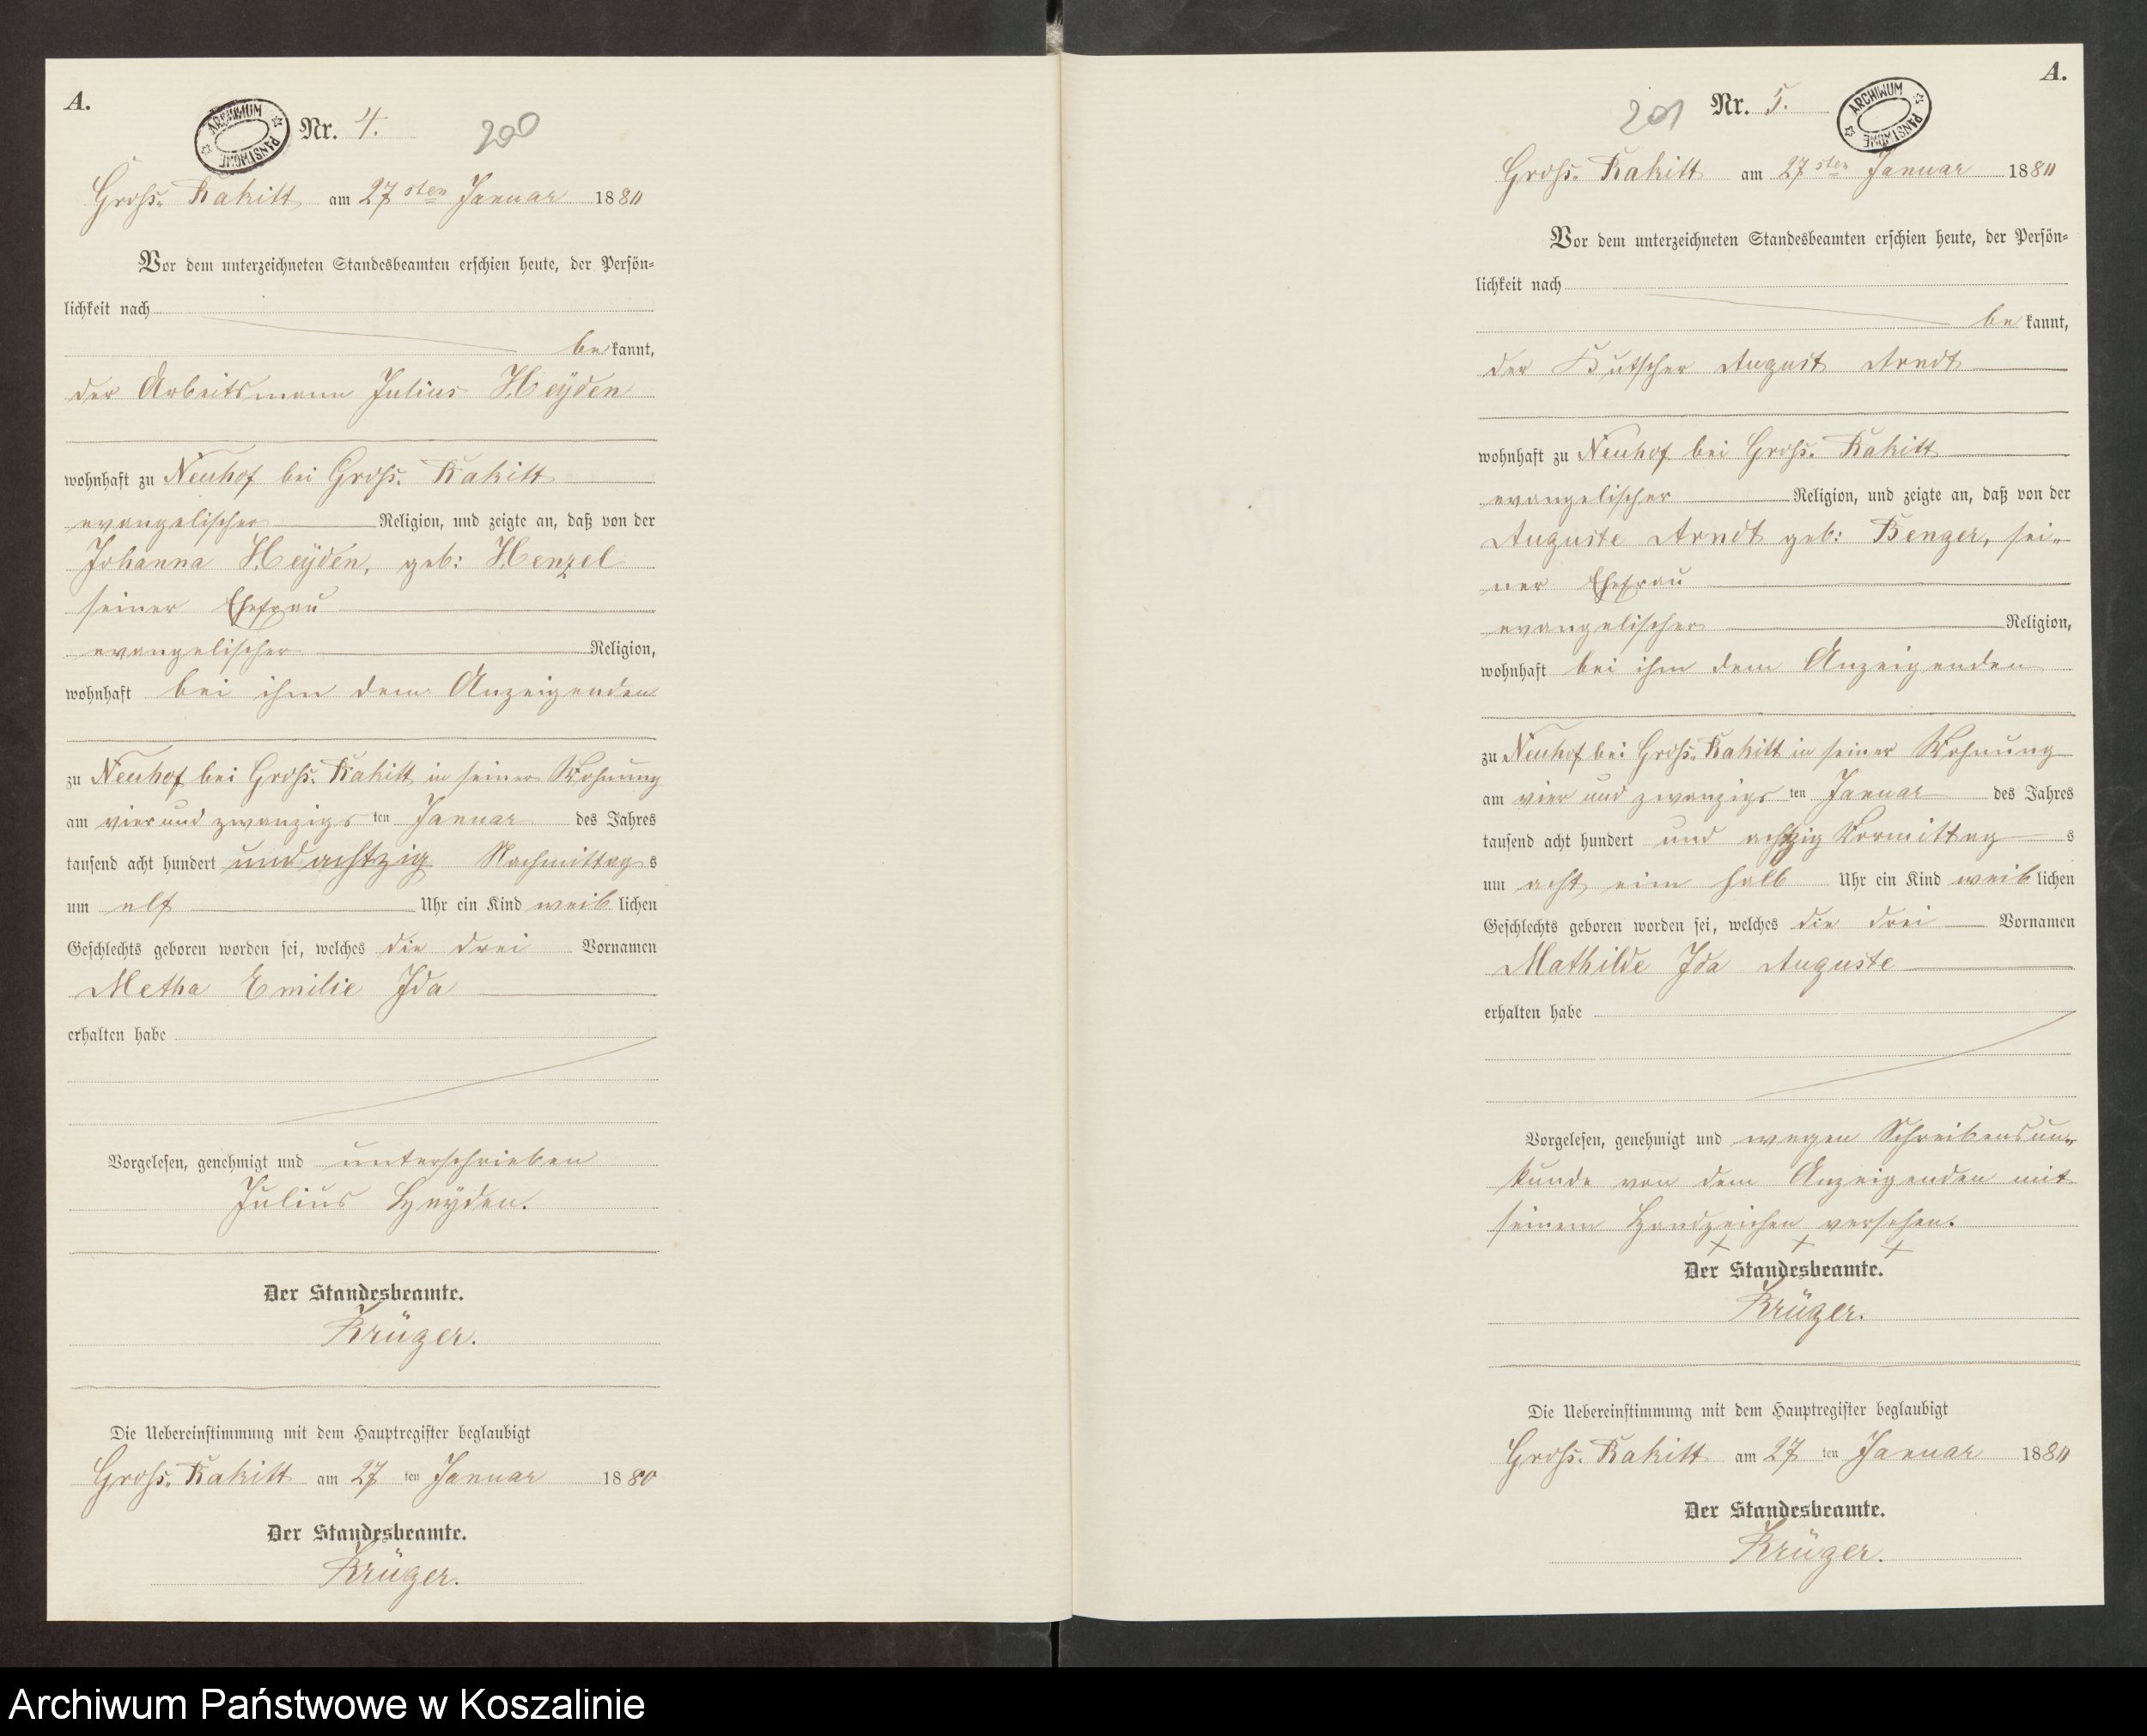 A.
ARCHIWUM PAŃSTWOWE
Nr. 4.
200
Gross. Rakitt am 27sten Januar 1880
Vor dem unterzeichneten Standesbeamten erschien heute, der Persön-
lichkeit nach
be kannt,
der Arbeitsmann Julius Heÿden
wohnhaft zu Neuhof bei Gross. Rakitt
evangelischer Religion, und zeigte an, daß von der
Johanna Heÿden, geb: Henzel
seiner Ehefrau
evangelischer Religion,
wohnhaft bei ihm dem Anzeigenden
zu Neuhof bei Gross. Rakitt in seiner Wohnung
am vier und zwanzigs ten Januar des Jahres
tausend acht hundert und achtzig Nachmittag s
um elf Uhr ein Kind weib lichen
Geschlechts geboren worden sei, welches die drei Vornamen
Metha Emilie Ida
erhalten habe
Vorgelesen, genehmigt und unterschrieben
Julius Heyden.
Der Standesbeamte.
Krüger.
Die Uebereinstimmung mit dem Hauptregister beglaubigt
Gross. Rakitt am 27 ten Januar 1880
Der Standesbeamte.
Krüger.
A.
201
Nr. 5.
ARCHIWUM PAŃSTWOWE
Gross. Rakitt am 27sten Januar 1880
Vor dem unterzeichneten Standesbeamten erschien heute, der Persön-
lichkeit nach
be kannt,
der Kutscher August Arndt
wohnhaft zu Neuhof bei Gross. Rakitt
evangelischer Religion, und zeigte an, daß von der
Auguste Arndt geb: Benger, sei-
ner Ehefrau
evangelischer Religion,
wohnhaft bei ihm dem Anzeigenden
zu Neuhof bei Gross. Rakitt in seiner Wohnung
am vier und zwanzigs ten Januar des Jahres
tausend acht hundert und achtzig Vormittag s
um acht ein halb Uhr ein Kind weib lichen
Geschlechts geboren worden sei, welches die drei Vornamen
Mathilde Ida Auguste
erhalten habe
Vorgelesen, genehmigt und wegen Schreibensun-
kunde von dem Anzeigenden mit
seinem Handzeichen versehen.
+ + +
Der Standesbeamte.
Krüger.
Die Uebereinstimmung mit dem Hauptregister beglaubigt
Gross. Rakitt am 27 ten Januar 1880
Der Standesbeamte.
Krüger.
Archiwum Państwowe w Koszalinie